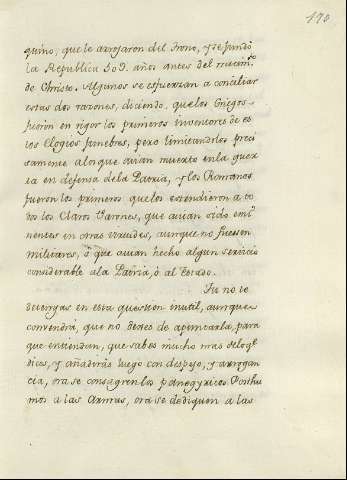 170
quino, que le arrojaron del trono, y se fundó
la Republica 509. años antes del nacim.to
de Christo. Algunos se esfuerzan a conciliar
estas dos razones, diciendo, que los Griegos
fueron en rigor los primeros inventores de es
tos Elogios funebres, pero limitandolos preci
samente a los que avian muerto en la guer
ra en defensa de la Patria, y los Romanos
fueron los primeros que los estendieron a to
dos los Claros Varones, que avian sido emi
nentes en otras virtudes, aunque no fuessen
militares, ó que avian hecho algun servicio
considerable a la Patria, ò al Estado.
Tu no te
detengas en esta question inutil, aunque
convendrà, que no dexes de apuntarla, para
que entiendan, que sabes mucho mas de lo q̃
dices, y añadiràs luego con despejo, y arrogan
cia, ora se consagren los panegyricos Posthu
mos a las Armas, ora se dediquen a las